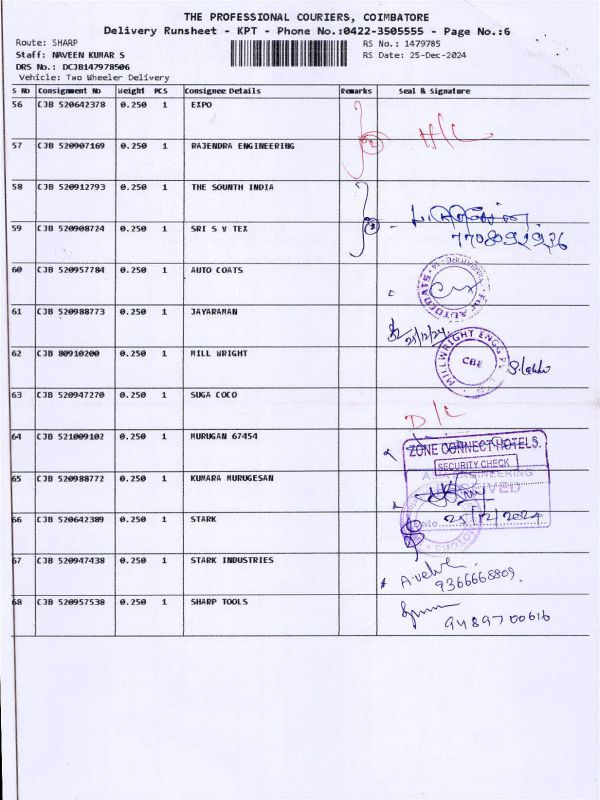 THE PROFESSIONAL COURIERS, COIMBATORE
Delivery Runsheet - KPT - Phone No.:0422-3505555 - Page No.:6
Route: SHARP
RS No.: 1479785
Staff: NAVEEN KUMAR S
RS Date: 25-Dec-2024
DRS No.: DCJB147978506
Vehicle: Two Wheeler Delivery
S No Consignment No Weight PCS Consignee Details Remarks Seal & Signature
56 CJB 520642378 0.250 1 EXPO
57 CJB 520907169 0.250 1 RAJENDRA ENGINEERING
58 CJB 520912793 0.250 1 THE SOUNTH INDIA
59 CJB 520908724 0.250 1 SRI S V TEX
7708092936
60 CJB 520957784 0.250 1 AUTO COATS
FOR AUTOCOATS
61 CJB 520988773 0.250 1 JAYARAMAN
25/12/24
62 CJB 80910200 0.250 1 MILL WRIGHT
MILLWRIGHT ENGG
CBE
63 CJB 520947270 0.250 1 SUGA COCO
D/L
64 CJB 521009102 0.250 1 MURUGAN 67454
ZONE CONNECT HOTELS.
SECURITY CHECK
65 CJB 520988772 0.250 1 KUMARA MURUGESAN
ENGINEERING
66 CJB 520642389 0.250 1 STARK
Date 25/12/2024
67 CJB 520947438 0.250 1 STARK INDUSTRIES
A.velu
9366668809.
68 CJB 520957538 0.250 1 SHARP TOOLS
9489700616